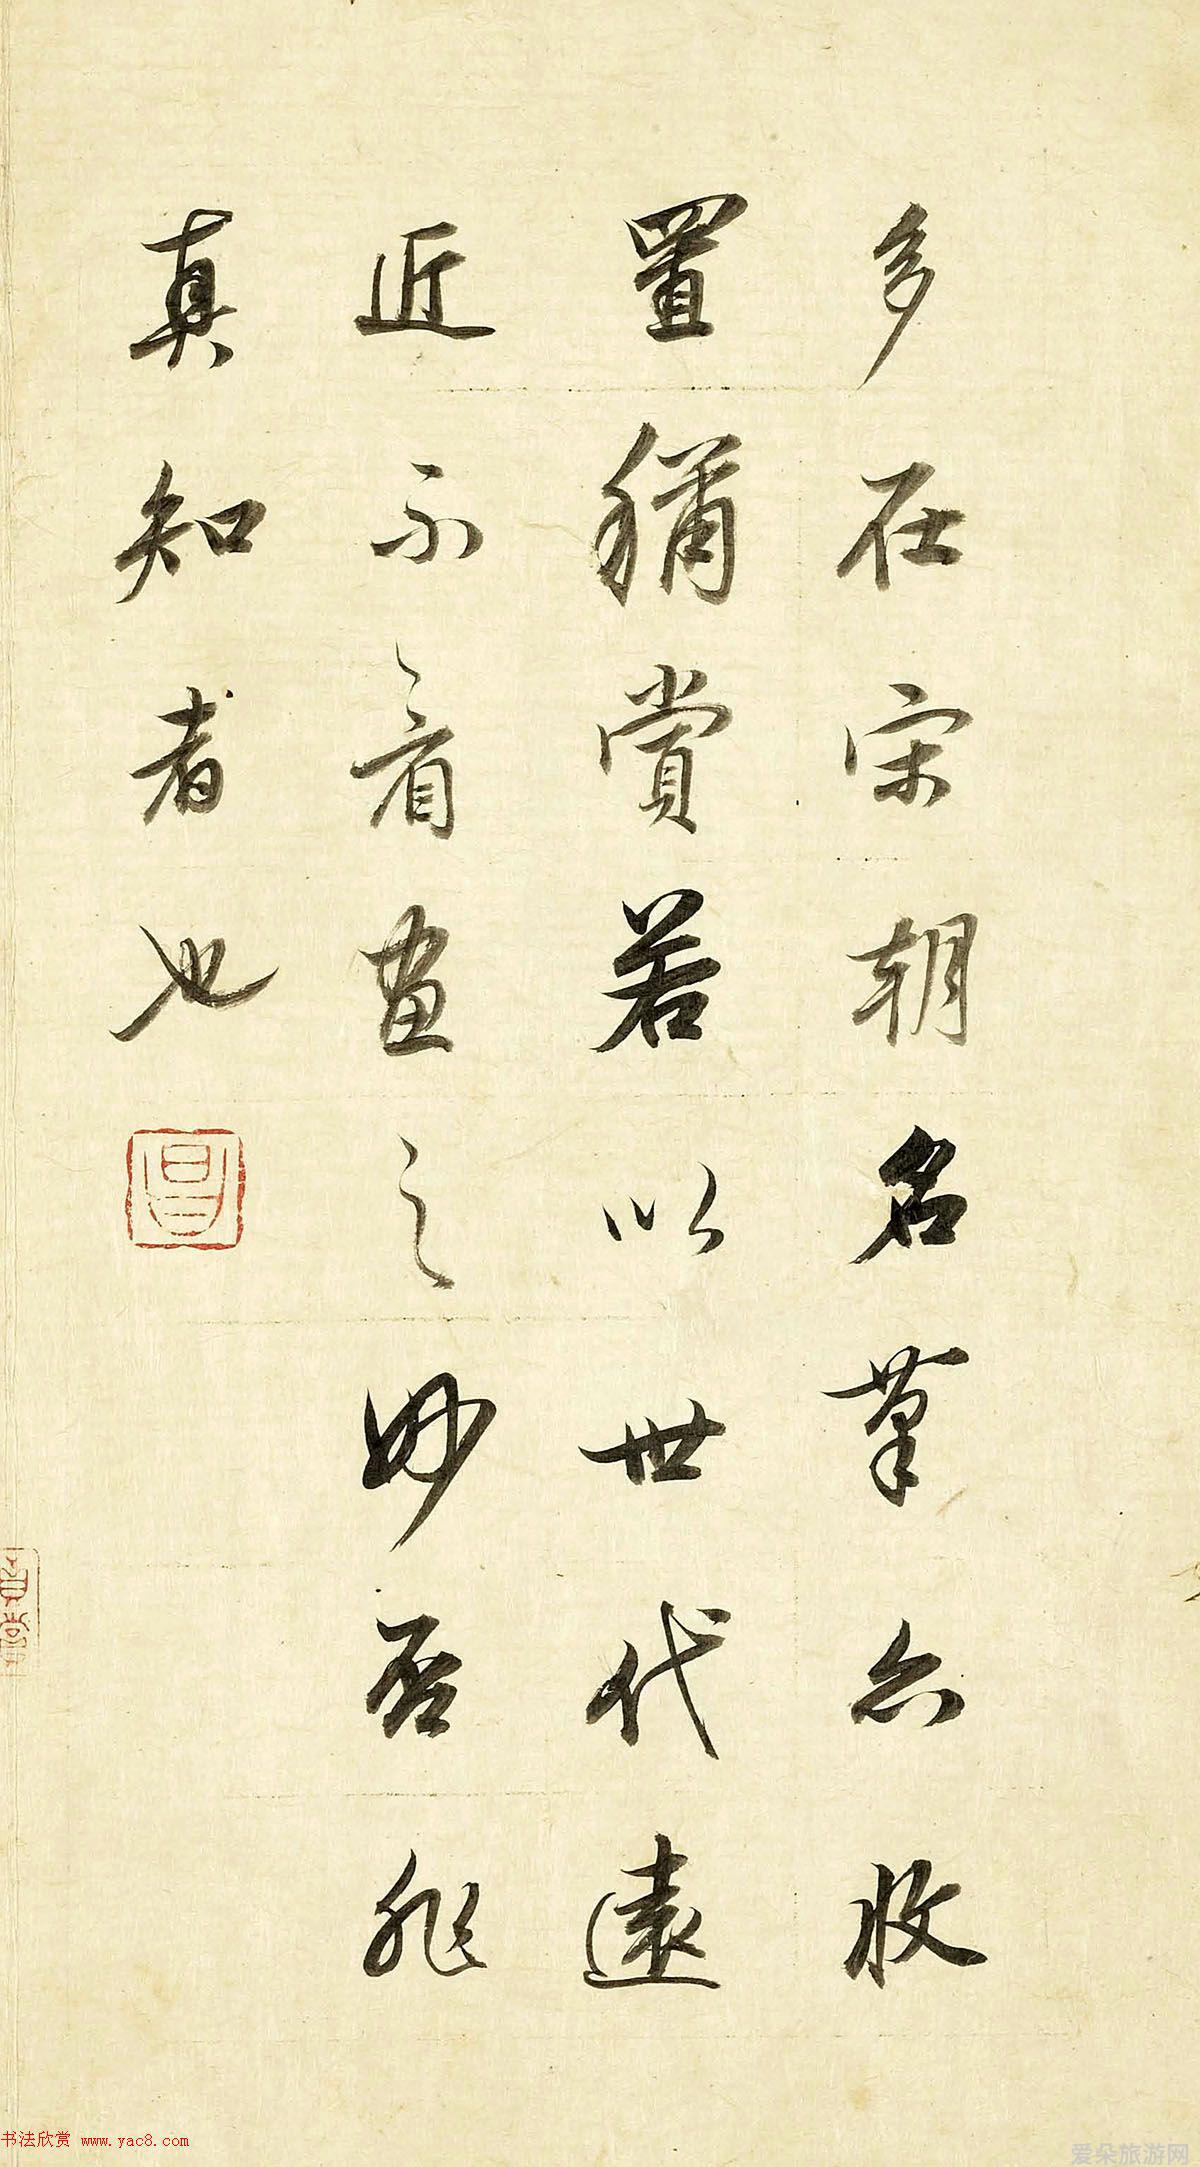 多在宋朝名筆亦收
置稱賞若以世代遠
近不看畫之妙否非
真知者也
昌
书法欣赏 www.yac8.com
爱朵旅游网